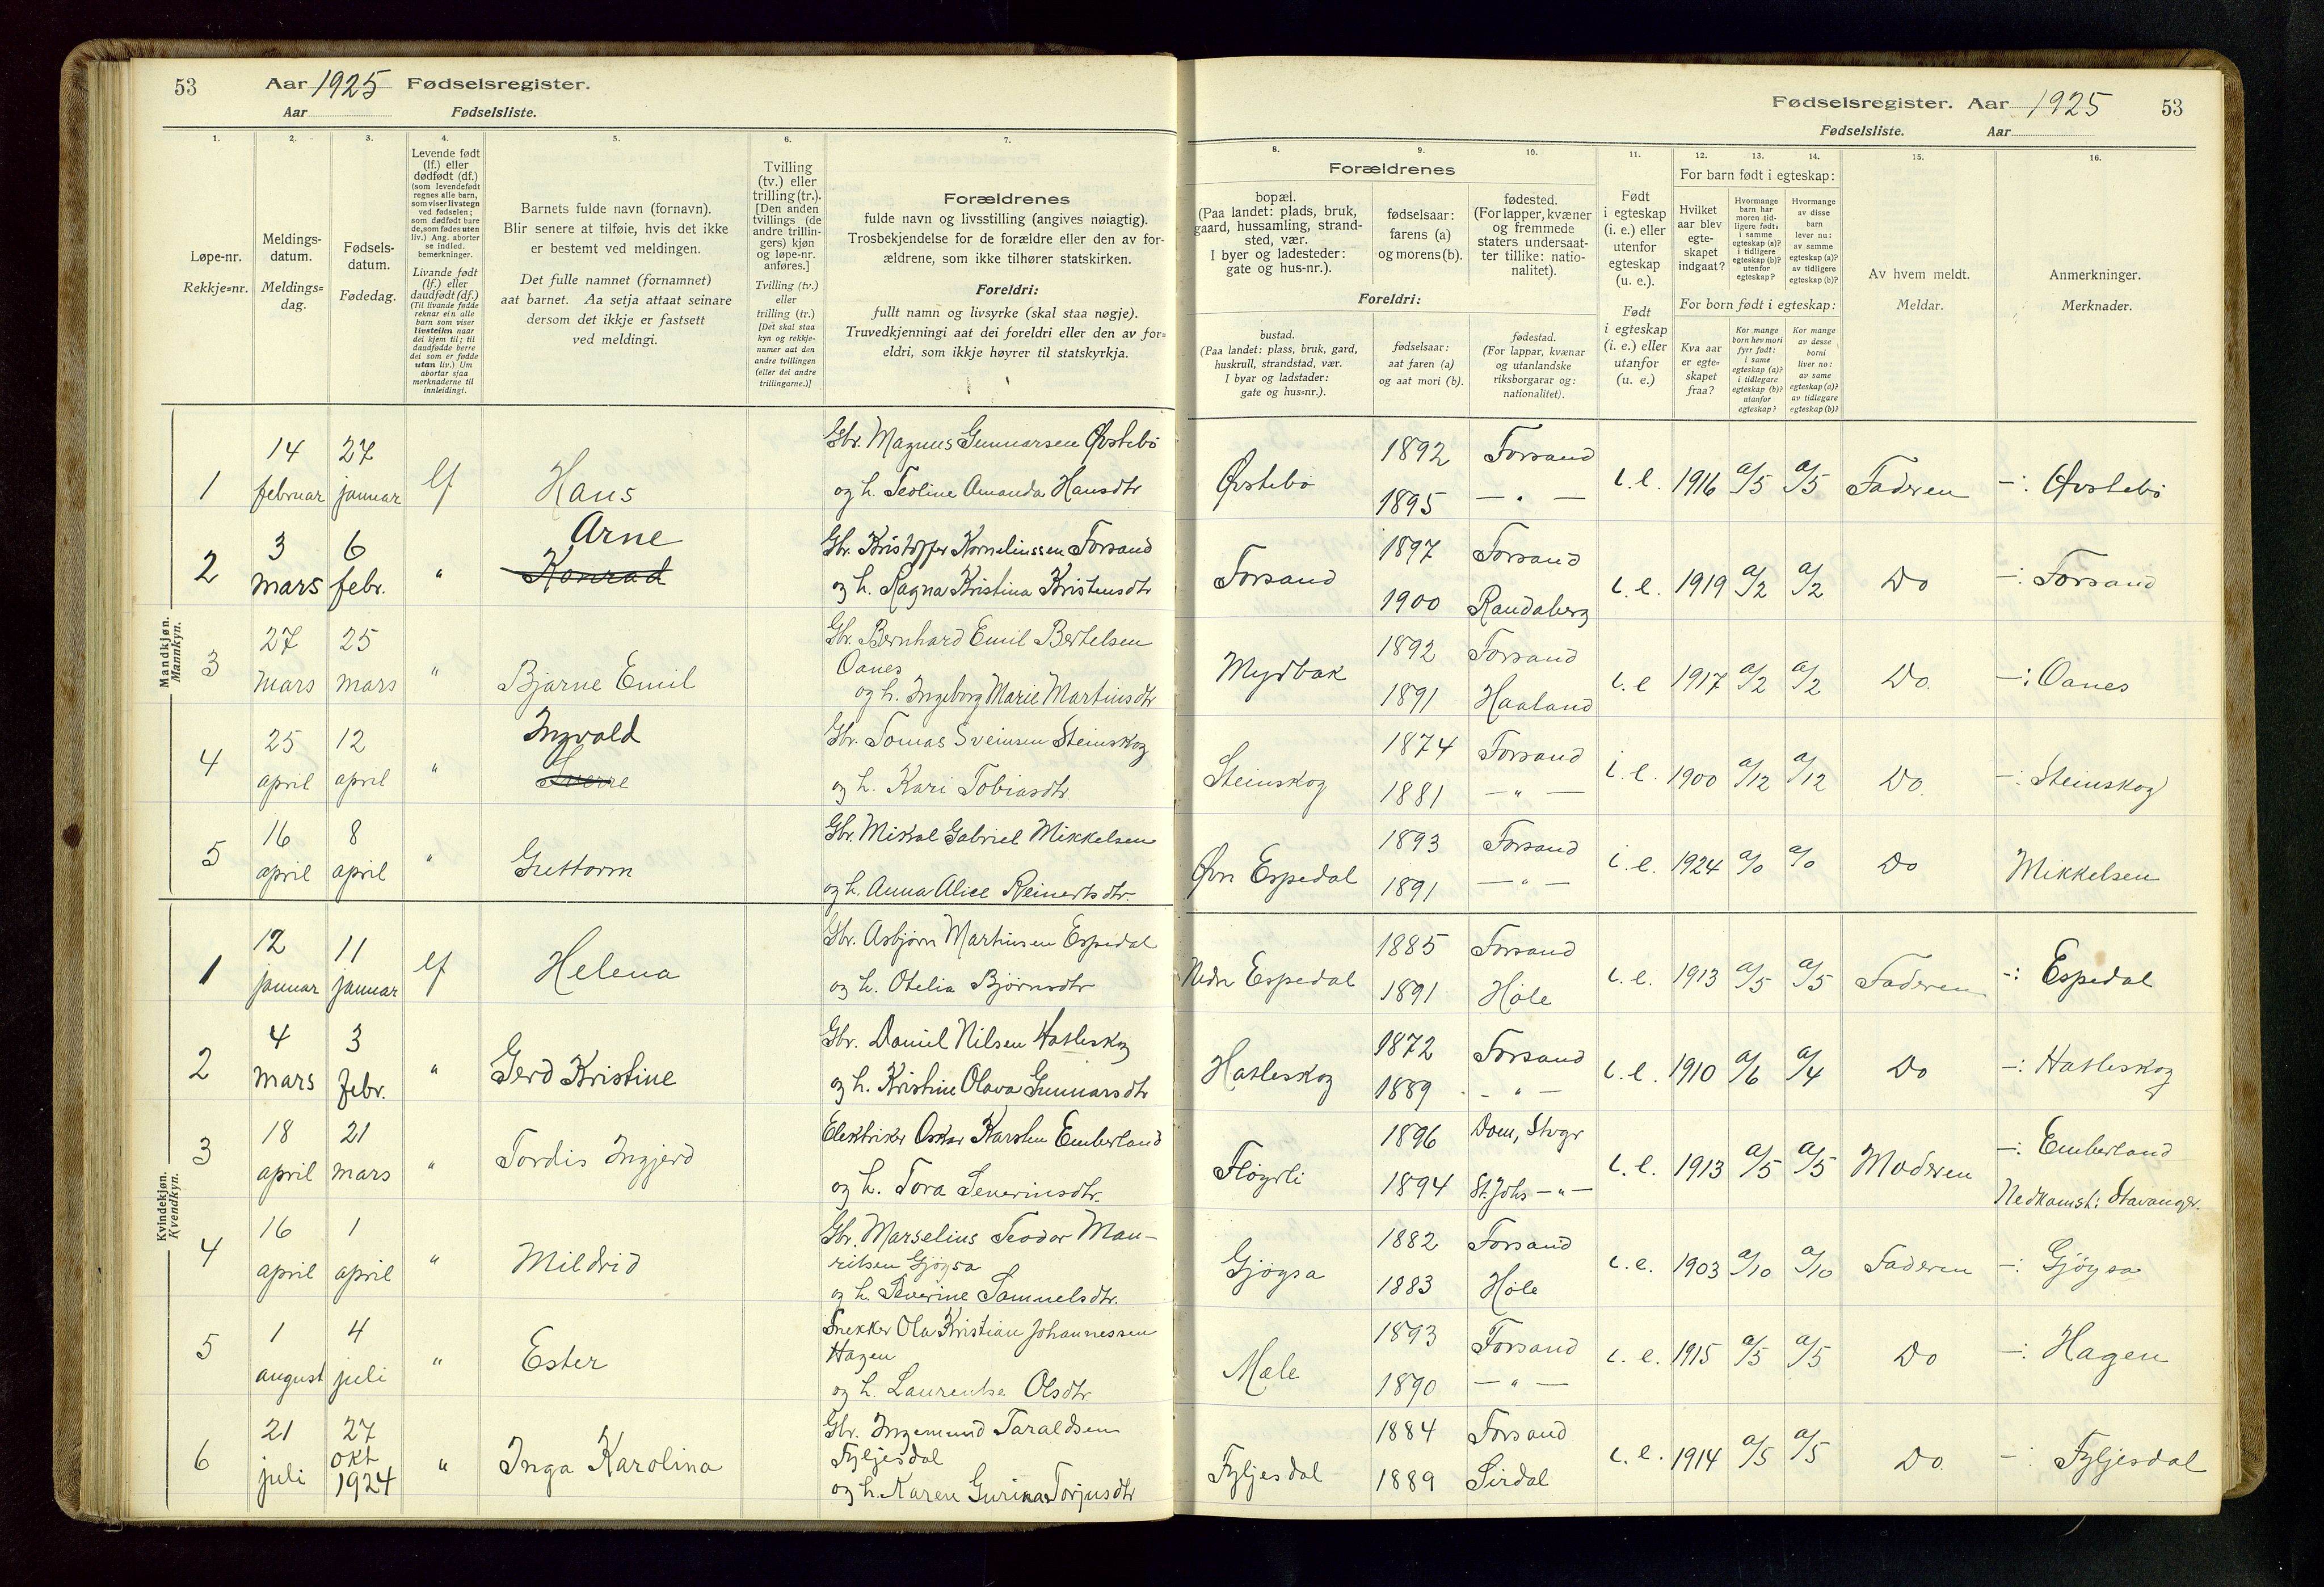 53 Aar 1925 Fødselsregister.
Aar Fødselsliste.
Fødselsregister. Aar 1925 53
Fødselsliste. Aar
1. 2. 3. 4. 5. 6. 7.
Løpe-nr.
Rekkje-nr.
Meldings-
datum.
Meldings-
dag.
Fødsels-
datum.
Fødedag.
Levende født
(lf.) eller
dødfødt (df.)
(som levendefødt
regnes alle barn,
som viser livstegn
ved fødselen;
som dødfødt bare
de, som fødes uten
liv.) Ang. aborter
se indled.
bemerkninger.
Livande født
(lf.) eller
daudfødt (df.)
(Til livande fødde
reknar ein alle
barn som viser
livsteikn naar
dei kjem til; til
daudfødde berre
dei som er fødde
utan liv.) Um
abortar sjaa
merknaderne til
innleidingi.
Barnets fulde navn (fornavn).
Blir senere at tilføie, hvis det ikke
er bestemt ved meldingen.
Det fulle namnet (fornamnet)
aat barnet. Aa setja attaat seinare
dersom det ikkje er fastsett
ved meldingi.
Tvilling
(tv.) eller
trilling (tr.).
[Den anden
tvillings (de
andre trillin-
gers) kjøn
og løpe-nr.
anføres.]
Tvilling (tv.)
eller
trilling (tr.)
[Det skal staa
kyn og rekkje-
numer aat den
andre tvillingen
(eller dei andre
trillingarne.)]
Forældrenes
fulde navn og livsstilling (angives nøiagtig).
Trosbekjendelse for de forældre eller den av for-
ældrene, som ikke tilhører statskirken.
Foreldri:
fullt namn og livsyrke (skal staa nøgje).
Truvedkjenningi aat dei foreldri eller den av for-
eldri, som ikkje høyrer til statskyrkja.
8. 9. 10. 11. 12. 13. 14. 15. 16.
Forældrenes
bopæl.
(Paa landet: plads, bruk,
gaard, hussamling, strand-
sted, vær.
I byer og ladesteder:
gate og hus-nr.).
fødselsaar:
farens (a)
og morens (b).
fødested.
(For lapper, kvæner
og fremmede
staters undersaat-
ter tillike: natio-
nalitet).
Foreldri:
bustad.
(Paa landet: plass, bruk, gard,
huskrull, strandstad, vær.
I byar og ladstader:
gate og hus-nr.).
fødselsaar:
aat faren (a)
og aat mori (b).
fødestad.
(For lappar, kvænar
og utanlandske
riksborgarar og:
nationalitet).
Født
i egteskap
(i. e.) eller
utenfor
egteskap
(u. e.).
Født
i egteskap
(i. e.) eller
utanfor
egteskap
(u. e.)
For barn født i egteskap:
Hvilket
aar blev
egte-
skapet
indgaat?
Hvormange
barn har
moren tid-
ligere født:
i samme
egteskap (a)?
i tidligere
egteskap (b)?
utenfor
egteskap?
Hvormange
av disse
barn
lever nu:
av samme
egteskap (a)?
av tidligere
egteskap (b)?
For born født i egteskap:
Kva aar
er egte-
skapet
fraa?
Kor mange
born hev mori
fyrr født:
i same
egteskap (a)?
i tidlegare
egteskap (b)?
utanfor
egteskap?
Kor mange
av desse
borni
liver no:
av same
egteskap (a)?
av tidlegare
egteskap (b)?
Av hvem meldt.
Meldar.
Anmerkninger.
Merknader.
Mandkjøn.
Mannkyn.
1 14 februar 27 januar lf Hans Gbr. Magnus Gunnarsen Øvstebö
og h. Teoline Amanda Hansdtr Øvstebö 1892 Forsand
1895 — " — i. e. 1916 a/5 a/5 Faderen —: Øvstebö
2 3 mars 6 febr. " Arne
Konrad Gbr. Kristoffer Korneliussen Forsand
og h. Ragna Kristina Kristensdtr Forsand 1897 Forsand
1900 Randaberg i. e. 1919 a/2 a/2 Do —: Forsand
3 27 mars 25 mars " Bjarne Emil Gbr. Bernhard Emil Bertelsen
Oanes
og h. Ingeborg Marie Martinsdtr Mydbak 1892 Forsand
1891 Haaland i. e 1917 a/2 a/2 Do. —: Oanes
4 25 april 12 april " Ingvald
Sverre Gbr. Tomas Sveinsen Steinskog
og h. Kari Tobiasdtr. Steinskog 1874 Forsand
1881 — " — i. e. 1900 a/12 a/12 Do. —: Steinskog
5 16 april 8 april " Guttorm Gbr. Mikal Gabriel Mikkelsen
og h. Anna Alice Reinertsdtr. Øvr Espedal 1893 Forsand
1891 — " — i. e. 1924 a/0 a/0 Do Mikkelsen
Kvindekjøn.
Kvendkyn.
1 12 januar 11 januar lf Helena Gbr. Asbjörn Martinsen Espedal
og h. Otelia Björnsdtr Nedr Espedal 1885 Forsand
1891 Höle i. e. 1913 a/5 a/5 Faderen —: Espedal
2 4 mars 3 febr. " Gerd Kristine Gbr. Daniel Nilsen Hatleskog
og h. Kristine Olava Gunnarsdtr Hatleskog 1872 Forsand
1889 — " — i. e. 1910 a/6 a/4 Do —: Hatleskog
3 18 april 21 mars " Tordis Ingjerd Elektriker Oskar Karsten Emberland
og h. Tora Severinsdtr. Flögrli 1896 Dom, Stvgr
1894 St. Johs — " — i. e. 1913 a/5 a/5 Moderen —: Emberland
Nedkomst: Stavanger.
4 16 april 1 april " Mildrid Gbr. Marselius Teodor Mau-
ritsen Gjögsa
og h. Severine Samuelsdtr. Gjögsa 1882 Forsand
1883 Höle i. e. 1903 a/10 a/10 Faderen —: Gjögsa
5 1 august 4 juli " Ester Snekker Ola Kristian Johannessen
Hagen
og h. Laurentse Olsdtr Mæle 1893 Forsand
1890 — " — i. e. 1915 a/5 a/5 Do —: Hagen
6 21 juli 27 okt 1924 " Inga Karolina Gbr. Ingemund Taraldsen
Fyljesdal
og h. Karen Gurina Torjusdtr Fyljesdal 1884 Forsand
1889 Sirdal i. e. 1914 a/5 a/5 Do. —: Fyljesdal